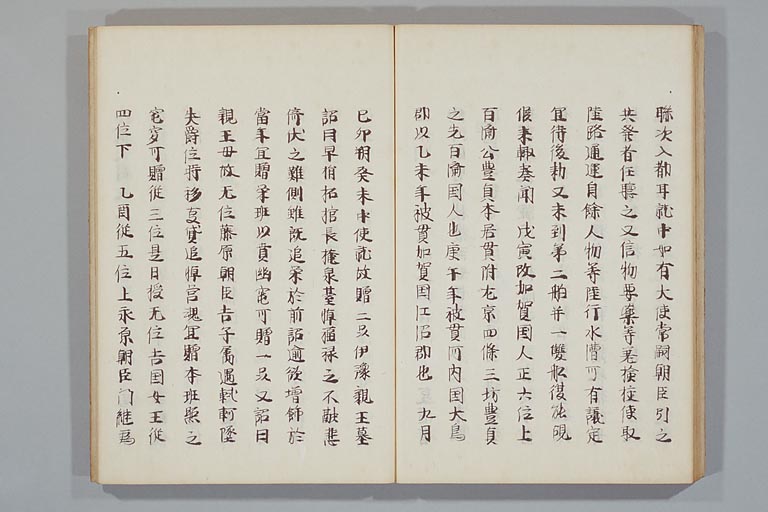 聯次入都耳就中如有大使常嗣朝臣引之
共發者任聽之又信物要藥等差檢校使取
陸路遞運自餘人物等陸行水漕可有議定
宜待後勅又未到第二舶并一雙船復能覘
候来輙奏聞 戊寅改加賀国人正六位上
百濟公豊貞本居貫附左京四條三坊豊貞
之先百濟国人也庚午年被貫河内国大鳥
郡以乙未年被貫加賀国江沼郡也 九月
己卯朔癸未中使就故贈二品伊豫親王墓
詔曰早俏拓掩長掩泉臺悼福禄之不融悲
倚伏之難側雖既追栄於前詔逾欲増餝於
當年宜贈崇班以賁幽穸可贈一品又詔曰
親王母故无位藤原朝臣吉子属遇軾軻墜
失爵位將移夐寶追悼宮魂宜贈本班照之
窀穸可贈従三位是日授无位吉岡女王従
四位下 乙酉従五位上永原朝臣門継為